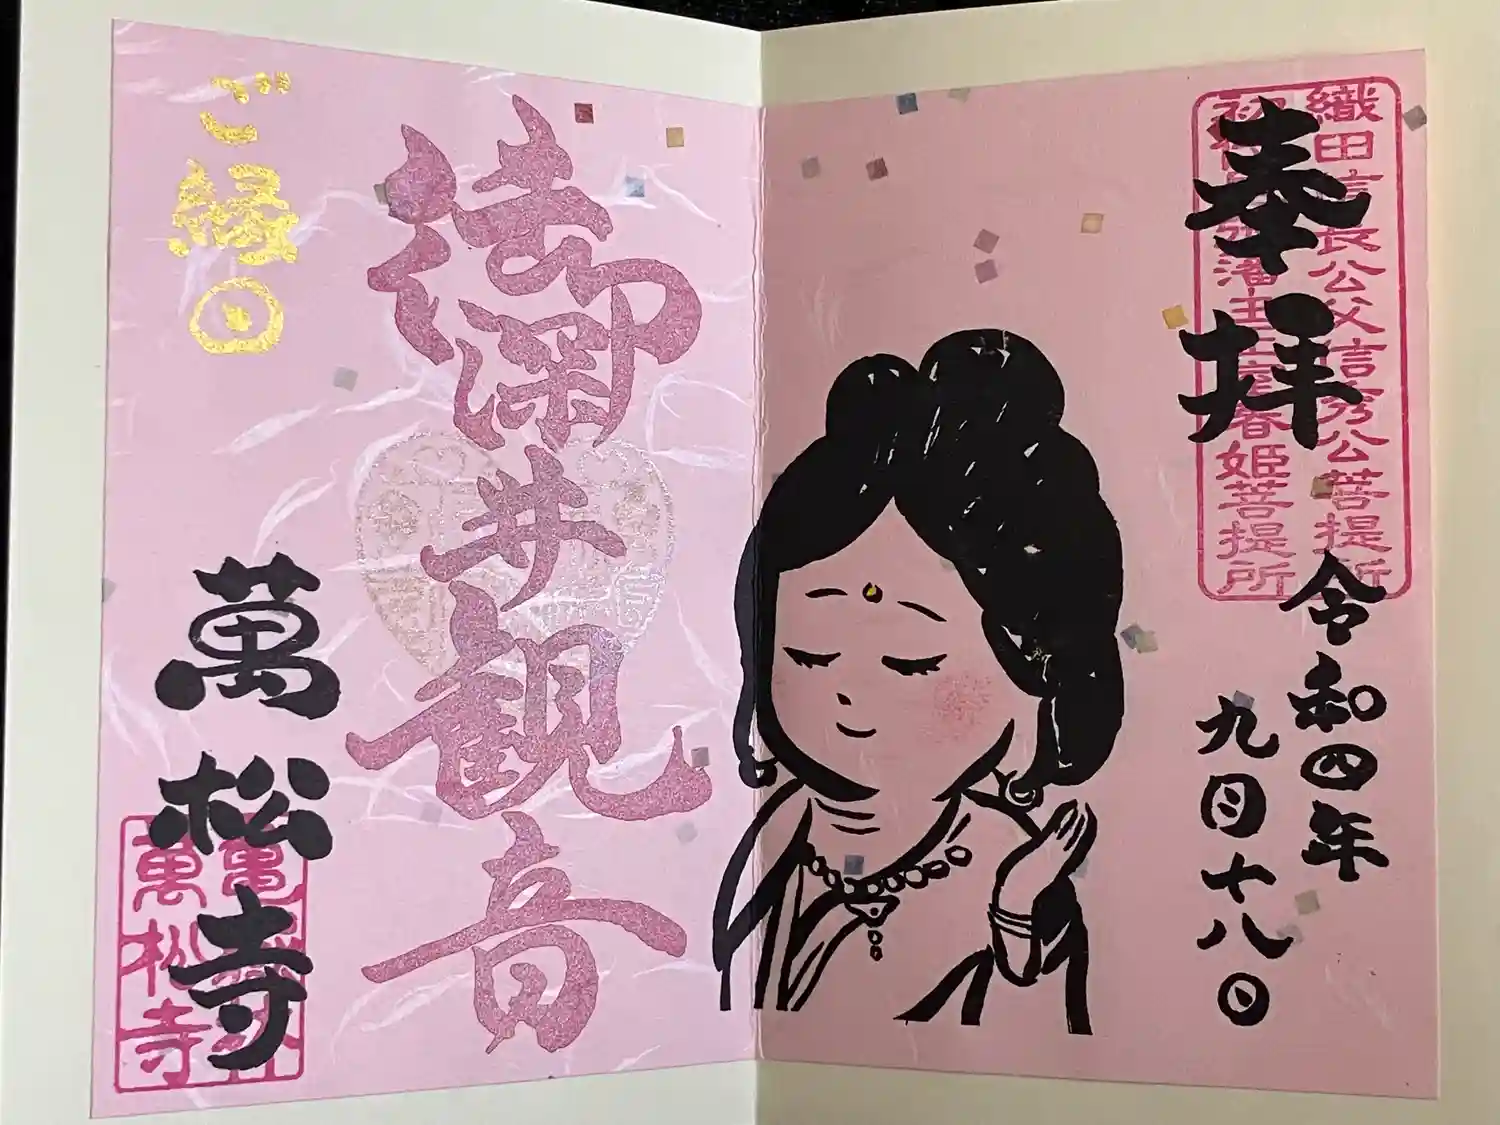 織田信長公父信秀公菩提所
初代尾張藩主正室春姫菩提所
奉拝
令和四年
九月十八日
御深井観音
ご縁日
萬松寺
萬松寺